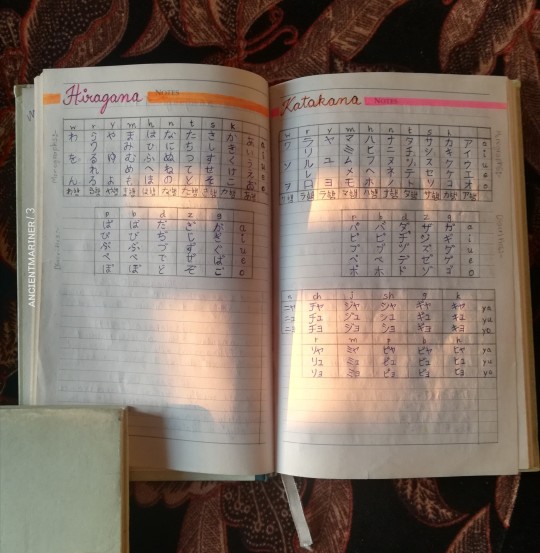 Hiragana NOTES
w r y m h n t s k
わ ら や ま は な た さ か あ a
り み ひ に ち し き い i
を る ゆ む ふ ぬ つ す く う u
れ め へ ね て せ け え e
ん ろ よ も ほ の と そ こ お o
p b d z g
ぱ ば だ ざ が a
ぴ び ぢ じ ぎ i
ぷ ぶ づ ず ぐ u
ぺ べ で ぜ げ e
ぽ ぼ ど ぞ ご o
Katakana NOTES
w r y m h n t s k
ワ ラ ヤ マ ハ ナ タ サ カ ア a
リ ミ ヒ ニ チ シ キ イ i
ル ユ ム フ ヌ ツ ス ク ウ u
レ メ ヘ ネ テ セ ケ エ e
ロ ヨ モ ホ ノ ト ソ コ オ o
p b d z g
パ バ ダ ザ ガ a
ピ ビ ヂ ジ ギ i
プ ブ ヅ ズ グ u
ペ ベ デ ゼ ゲ e
ポ ボ ド ゾ ゴ o
n ch j sh g k
ニャ チャ ジャ シャ ギャ キャ ya
ニュ チュ ジュ シュ ギュ キュ yu
ニョ チョ ジョ ショ ギョ キョ yo
r m p b h
リャ ミャ ピャ ビャ ヒャ ya
リュ ミュ ピュ ビュ ヒュ yu
リョ ミョ ピョ ビョ ヒョ
ANCIENTMARINER / 3